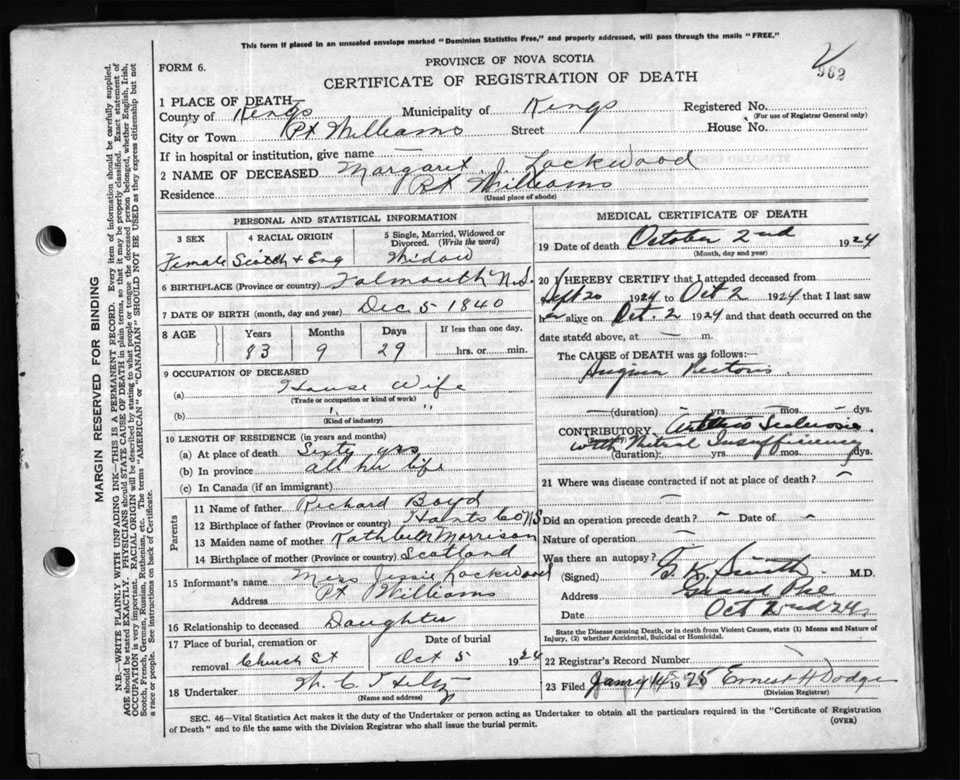 This form if placed in an unsealed envelope marked "Dominion Statistics Free," and properly addressed, will pass through the mails "FREE."
PROVINCE OF NOVA SCOTIA
FORM 6.
CERTIFICATE OF REGISTRATION OF DEATH
962
1 PLACE OF DEATH
County of Kings Municipality of Kings Registered No.
(For use of Registrar General only)
City or Town Pt Williams Street House No.
If in hospital or institution, give name —
2 NAME OF DECEASED Margaret J. Lockwood
Residence Pt Williams
(Usual place of abode)
PERSONAL AND STATISTICAL INFORMATION
3 SEX 4 RACIAL ORIGIN 5 Single, Married, Widowed or Divorced. (Write the word)
Female Scotch + Eng Widow
6 BIRTHPLACE (Province or country) Falmouth N.S.
7 DATE OF BIRTH (month, day and year) Dec 5 1840
8 AGE Years Months Days If less than one day,
83 9 29 hrs. or min.
9 OCCUPATION OF DECEASED
(a) House Wife
(Trade or occupation or kind of work)
(b) " "
(Kind of industry)
10 LENGTH OF RESIDENCE (in years and months)
(a) At place of death Sixty yrs
(b) In province all her life
(c) In Canada (if an immigrant)
Parents
11 Name of father Richard Boyd
12 Birthplace of father (Province or country) Hants Co NS
13 Maiden name of mother Morrison
14 Birthplace of mother (Province or country) Scotland
15 Informant's name Miss Jessie Lockwood
Address Pt Williams
16 Relationship to deceased Daughter
17 Place of burial, cremation or Date of burial
removal Church St Oct 5 1924
18 Undertaker W. C. Hiltz
(Name and address)
MEDICAL CERTIFICATE OF DEATH
19 Date of death October 2nd 1924
(Month, day and year)
20 I HEREBY CERTIFY that I attended deceased from
Sept 20 1924 to Oct 2 1924 that I last saw
h alive on Oct. 2 1924 and that death occurred on the
date stated above, at — m.
The CAUSE of DEATH was as follows:—
Angina Pectoris
(duration) yrs. mos. dys.
CONTRIBUTORY Arterio Sclerosis
with Mitral Insufficiency
(duration): yrs. mos. dys.
21 Where was disease contracted if not at place of death? —
Did an operation precede death? – Date of –
Nature of operation –
Was there an autopsy? –
(Signed) Smith M.D.
Address Grand Pre
Date Oct 2nd 24
State the Disease causing Death, or in death from Violent Causes, state (1) Means and Nature of Injury, (2) whether Accidental, Suicidal or Homicidal.
22 Registrar's Record Number
23 Filed 14 1925 Ernest H Dodge
(Division Registrar)
SEC. 46—Vital Statistics Act makes it the duty of the Undertaker or person acting as Undertaker to obtain all the particulars required in the "Certificate of Registration
of Death" and to file the same with the Division Registrar who shall issue the burial permit.
(OVER)
MARGIN RESERVED FOR BINDING
N.B.—WRITE PLAINLY WITH UNFADING INK—THIS IS A PERMANENT RECORD. Every item of information should be carefully supplied.
AGE should be stated EXACTLY. PHYSICIANS should STATE CAUSE OF DEATH in plain terms, so that it may be properly classified. Exact statement of
OCCUPATION is very important. RACIAL ORIGIN will be described by stating to what people or tongue the deceased person belonged, whether English, Irish,
Scotch, French, German, Russian, Ruthenian, etc. The terms "AMERICAN" or "CANADIAN" SHOULD NOT BE USED as they express citizenship but not
a race or people. See instructions on back of Certificate.